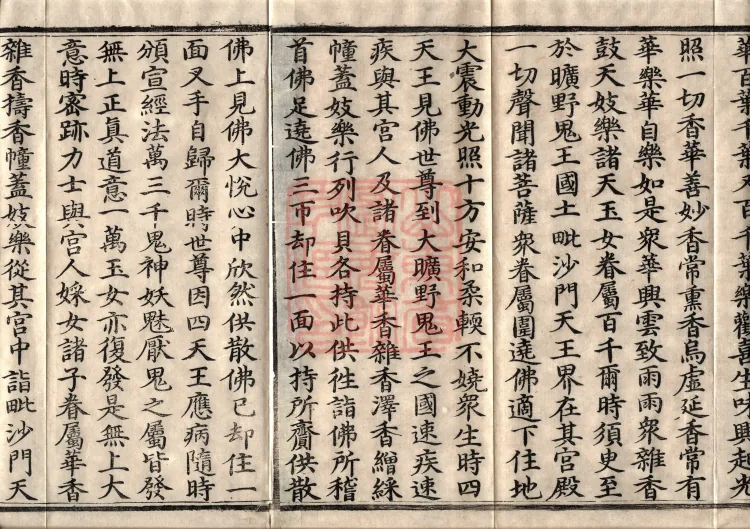 華百葉千葉大百千葉樂觀喜生味興起光
照一切香華善妙香常熏香烏虛延香常有
華樂華自樂如是衆華興雲致雨雨衆雜香
鼓天妓樂諸天玉女眷屬百千爾時須臾至
於曠野鬼王國土毗沙門天王界在其宮殿
一切聲聞諸菩薩衆眷屬圍遶佛適下住地
大震動光照十方安和柔軟不嬈衆生時四
天王見佛世尊到大曠野鬼王之國速疾速
疾與其宮人及諸眷屬華香雜香澤香繒綵
幢蓋妓樂行列吹貝各持此供往詣佛所稽
首佛足遶佛三帀却住一面以持所齎供散
佛上見佛大悅心中欣然供散佛已却住一
面叉手自歸爾時世尊因四天王應病隨時
頒宣經法萬三千鬼神妖魅厭鬼之屬皆發
無上正真道意一萬玉女亦復發是無上大
意時密跡力士與宮人婇女諸子眷屬華香
雜香擣香幢蓋妓樂從其宮中詣毗沙門天